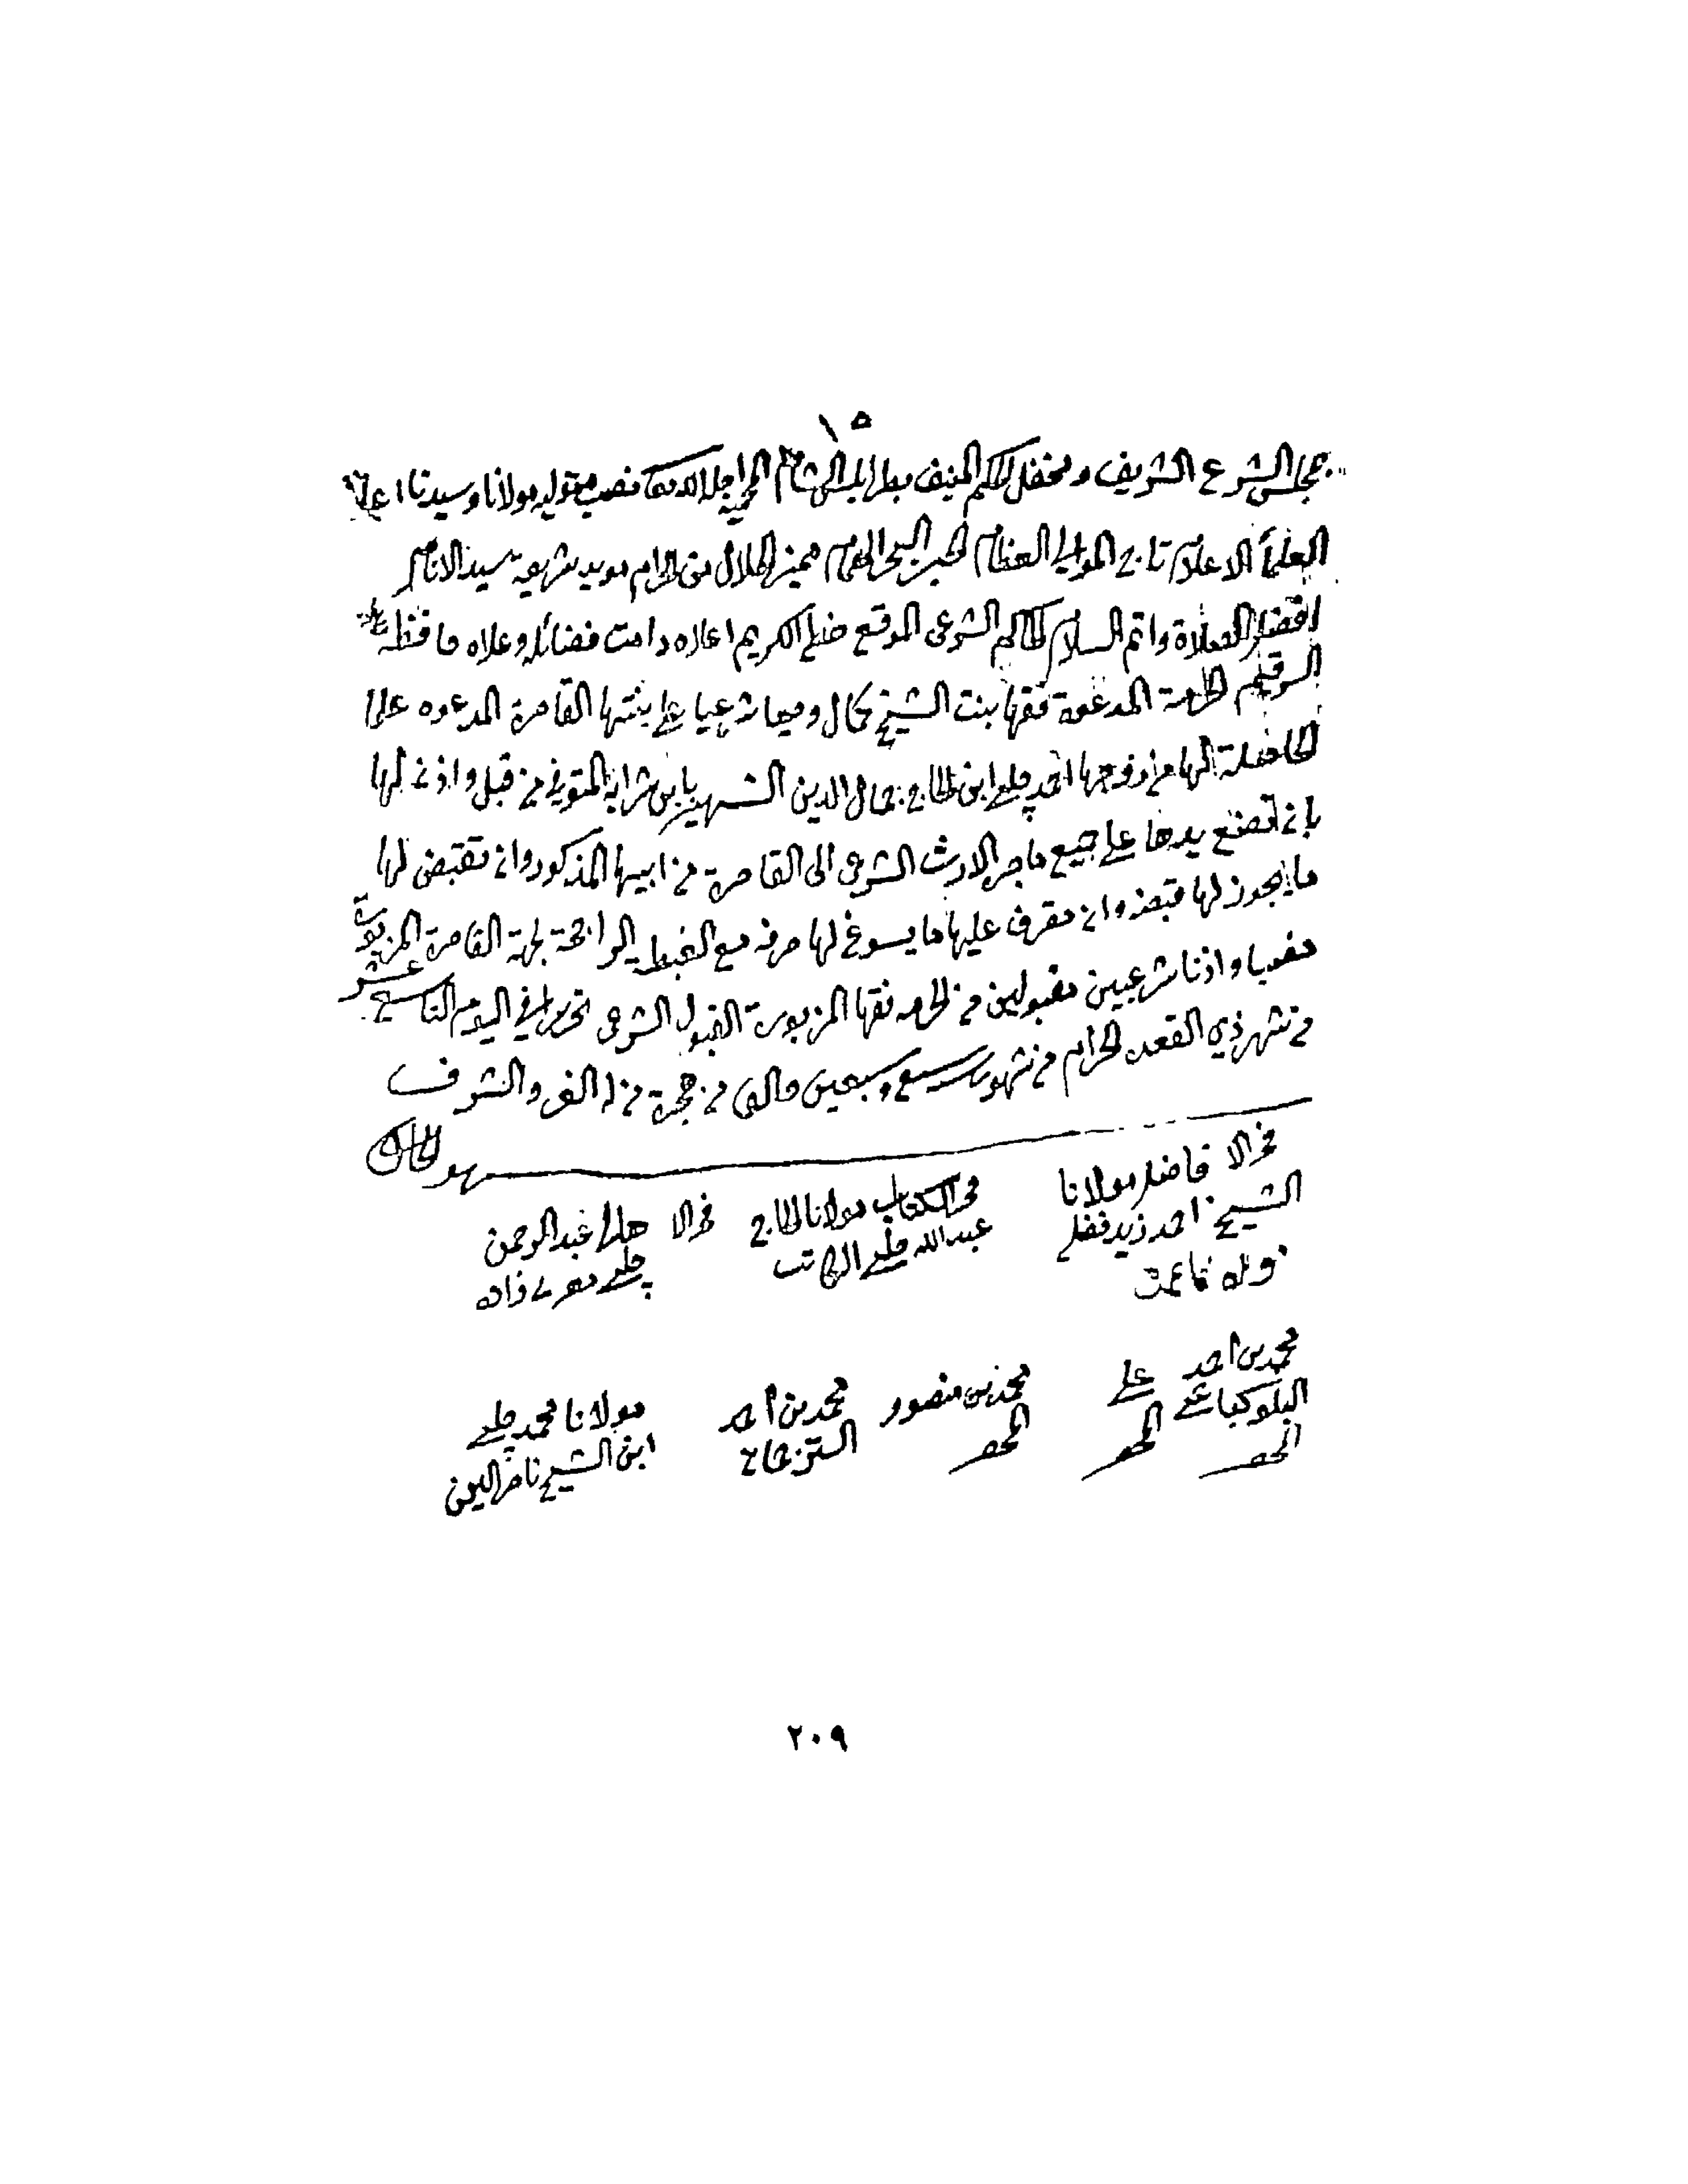 ١٥
بمجلس الشرع الشريف ومحفل الحكم المنيف بطرابلس الشام المحمية اجلا الله نصب متوليه مولانا وسيدنا اعلم
العلماء الاعلام تاج الموالي العظام الحبر البحر الهمام مميز الحلال من الحرام مويد شريعة سيد الانام
افضل الصلاة واتم السلام الحاكم الشرعي الموقع خطه الكريم اعلاه دامت فضائله وعلاه حافظة
الرقيم الحرمة المدعوة نقها بنت الشيخ كمال وصيا شرعيا على بنتها القاصرة المدعوه علما
الحاصلة لها من زوجها احمد چلبي ابن الحاج جمال الدين الشهير بابن شرابه المتوفي من قبل واذن لها
بان تضع يدها على جميع ما جره الارث الشرعي الى القاصرة من ابيها المذكور وان تقبض لها
ما يجوز لها قبضه وان تصرف عليها ما يسوغ لها صرفه مع الغبطة الراجحة لجهة القاصرة المزبورة
نصبا واذنا شرعيين مقبولين من الحرمه نقها المزبورة القبول الشرعي تحريرا في اليوم التاسع عشر
من شهر ذي القعدة الحرام من شهور سنة سبع وسبعين والف من هجرة من له العز والشرف
شهود الحال
فخر الافاضل مولانا
الشيخ احمد زيد فضله
فخر الكتاب مولانا الحاج
عبد الله چلبي الكاتب
فخر الاهالي عبد الرحمن
چلبي زاده
محمد بن احمد
المحضر
علي
المحضر
محمد بن منصور
المحضر
محمد بن احمد
الترجمان
مولانا محمد چلبي
ابن الشيخ ناصر الدين
٢٠٩